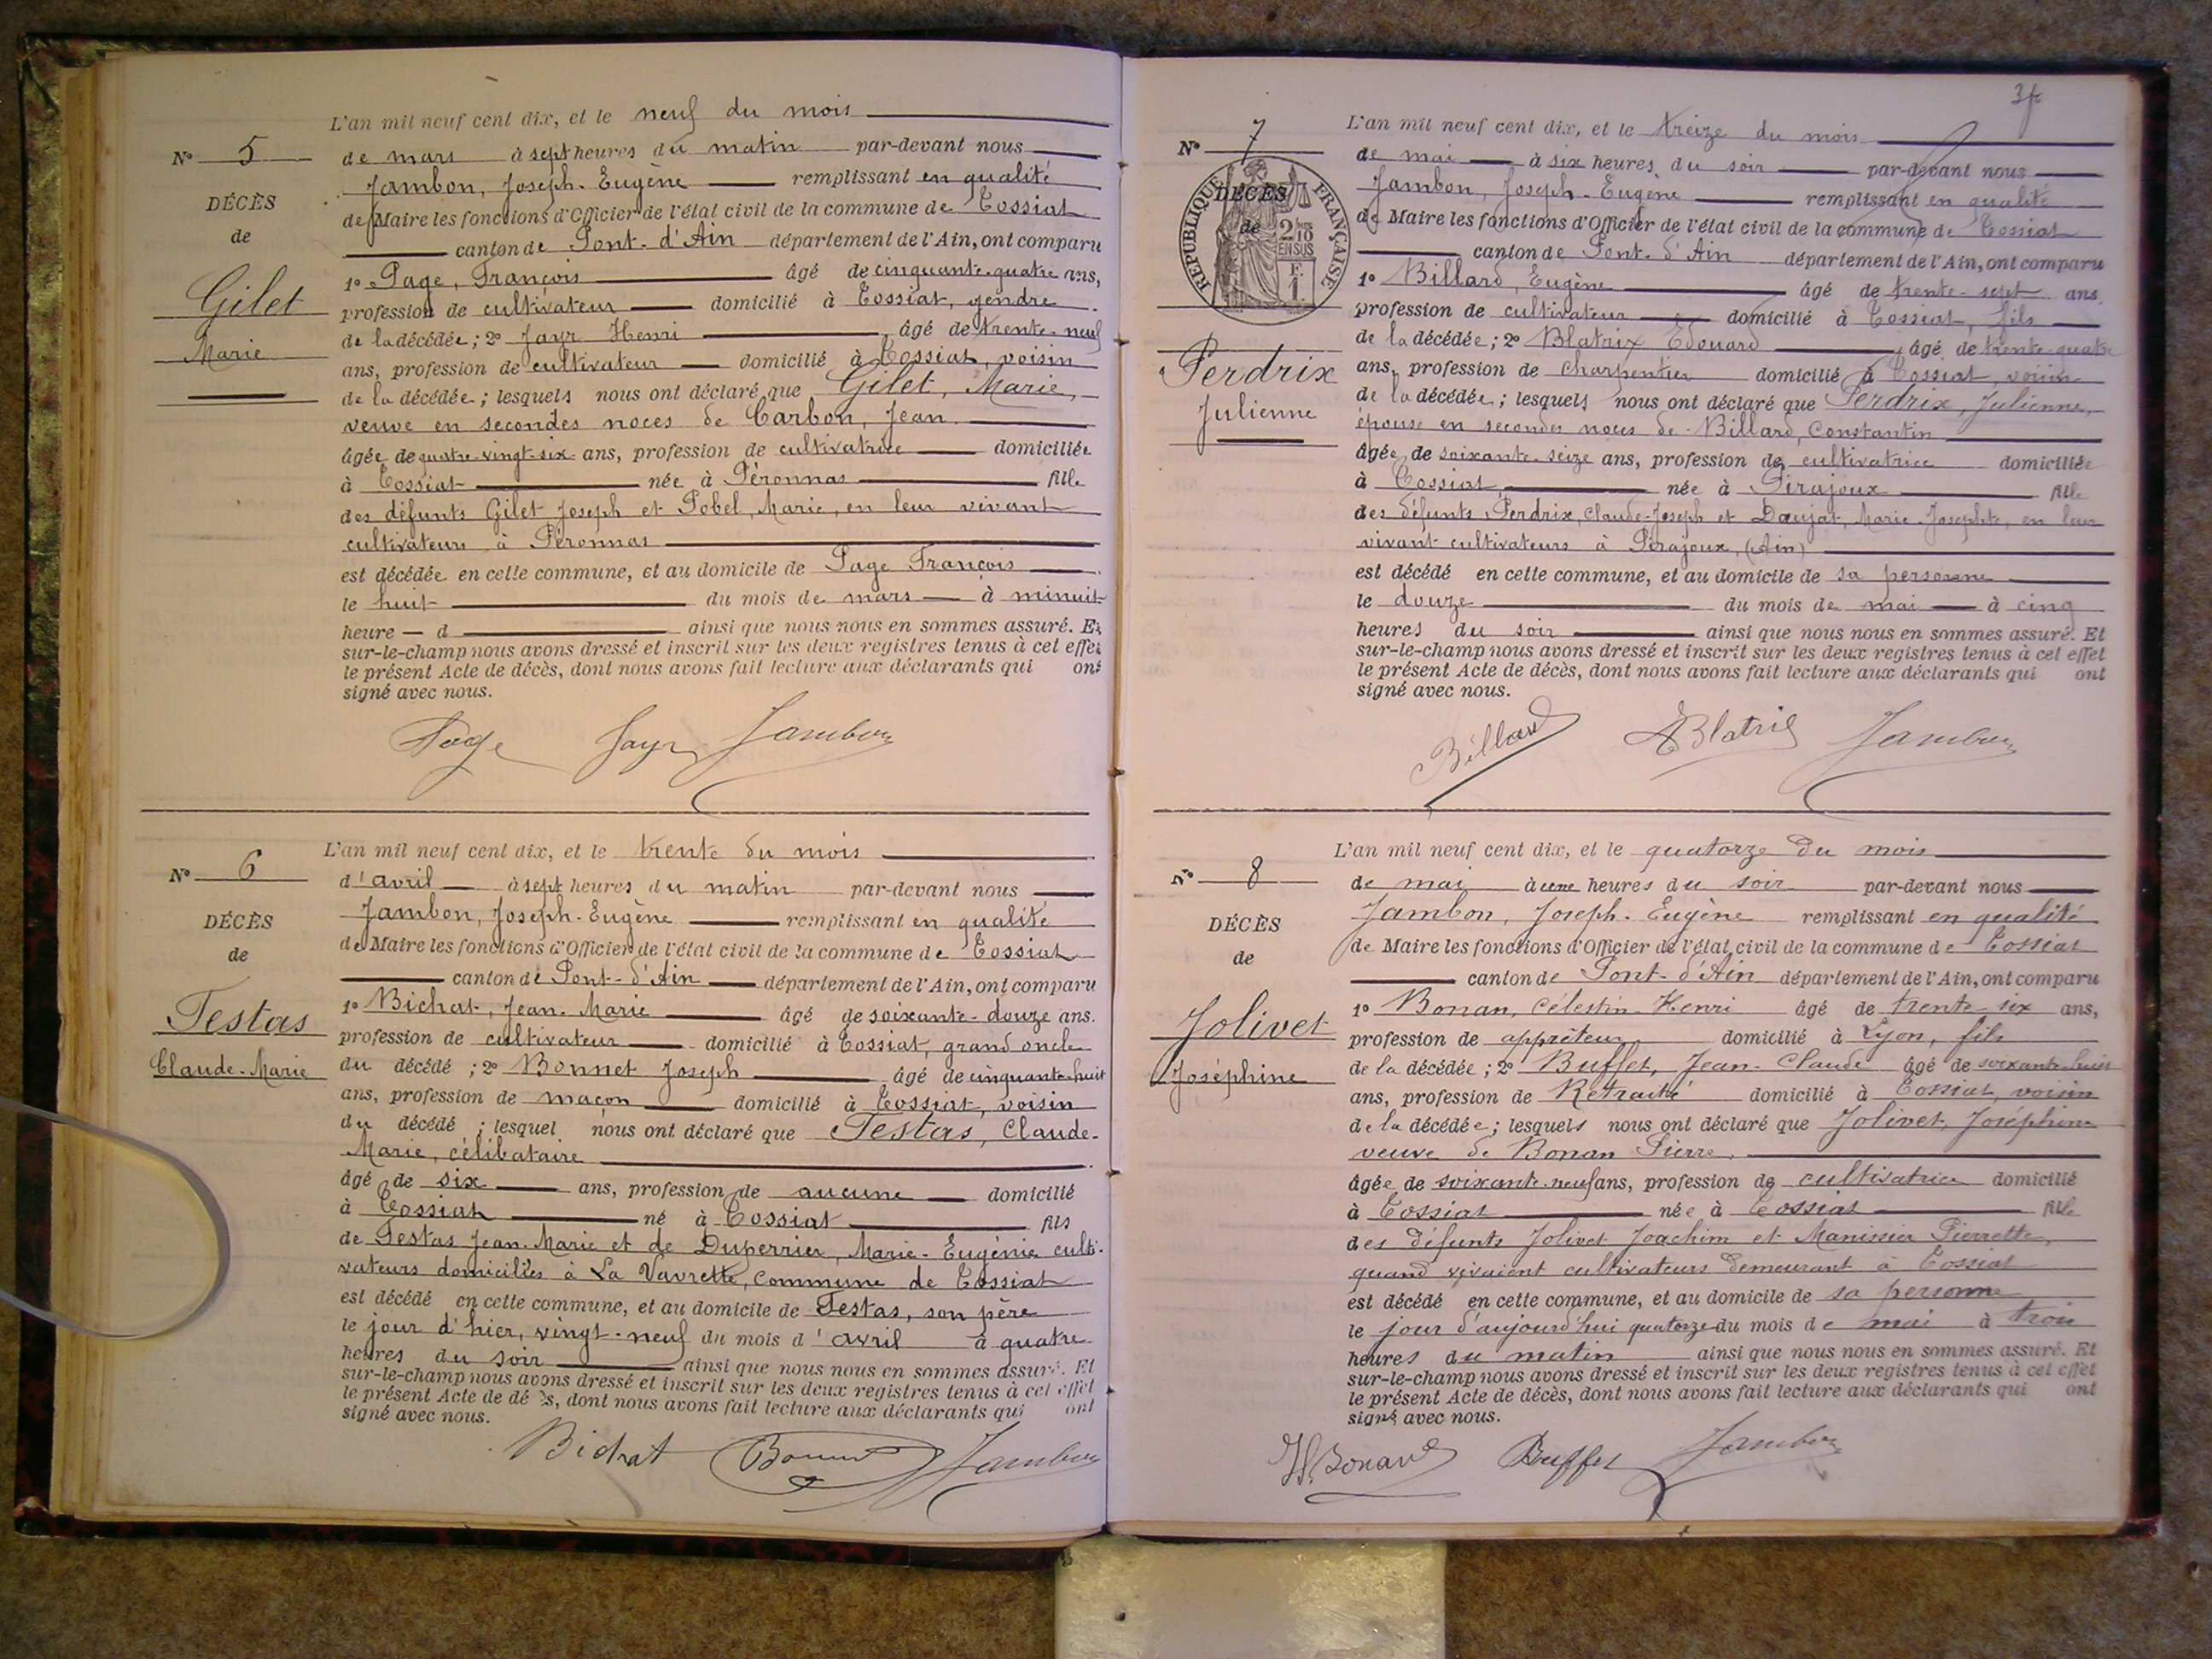 L'an mil neuf cent dix, et le neuf du mois
N° 5
de mars à sept heures du matin par-devant nous
Jambon, Joseph-Eugène remplissant en qualité
DÉCÈS
de Maire les fonctions d'Officier de l'état civil de la commune de Tossiat
de
canton de Pont-d'Ain département de l'Ain, ont comparu
Gilet
1° Page, François âgé de cinquante-quatre ans,
profession de cultivateur domicilié à Tossiat, gendre
Marie
de la décédée ; 2° Jayr Henri âgé de trente-neuf
ans, profession de cultivateur domicilié à Tossiat, voisin
de la décédée ; lesquels nous ont déclaré que Gilet, Marie,
veuve en secondes noces de Carbon, Jean
âgée de quatre-vingt-six ans, profession de cultivatrice domiciliée
à Tossiat née à Péronnas fille
des défunts Gilet Joseph et Pobel, Marie, en leur vivant
cultivateurs à Péronnas
est décédée en cette commune, et au domicile de Page François
le huit du mois de mars à minuit
heure d ainsi que nous nous en sommes assuré. Et
sur-le-champ nous avons dressé et inscrit sur les deux registres tenus à cet effet
le présent Acte de décès, dont nous avons fait lecture aux déclarants qui ont
signé avec nous.
Page Jayr Jambon
L'an mil neuf cent dix, et le trente du mois
N° 6
d'avril à sept heures du matin par-devant nous
Jambon, Joseph-Eugène remplissant en qualité
DÉCÈS
de Maire les fonctions d'Officier de l'état civil de la commune de Tossiat
de
canton de Pont-d'Ain département de l'Ain, ont comparu
Testas
1° Bichat, Jean-Marie âgé de soixante-douze ans.
profession de cultivateur domicilié à Tossiat, grand oncle
Claude-Marie
du décédé ; 2° Bonnet Joseph âgé de cinquante-huit
ans, profession de maçon domicilié à Tossiat, voisin
du décédé ; lesquel nous ont déclaré que Testas, Claude-
Marie, célibataire
âgé de six ans, profession de aucune domicilié
à Tossiat né à Tossiat fils
de Testas Jean-Marie et de Duperrier, Marie-Eugénie culti-
vateurs domiciliés à La Vavrette, commune de Tossiat
est décédé en cette commune, et au domicile de Testas, son père
le jour d'hier, vingt-neuf du mois d'avril à quatre
heures du soir ainsi que nous nous en sommes assuré. Et
sur-le-champ nous avons dressé et inscrit sur les deux registres tenus à cet effet
le présent Acte de dé ès, dont nous avons fait lecture aux déclarants qui ont
signé avec nous.
Bichat Bonnet Jambon
L'an mil neuf cent dix, et le treize du mois
N° 7
de mai à six heures du soir par-devant nous
Jambon, Joseph-Eugène remplissant en qualité
DÉCÈS
de Maire les fonctions d'Officier de l'état civil de la commune de Tossiat
de
RÉPUBLIQUE FRANÇAISE
2/10 EN SUS
canton de Pont-d'Ain département de l'Ain, ont comparu
1° Billard, Eugène âgé de trente-sept ans
profession de cultivateur domicilié à Tossiat, fils
de la décédée ; 2° Blatrix Edouard âgé de trente-quatre
Perdrix
ans, profession de charpentier domicilié à Tossiat, voisin
Julienne
de la décédée ; lesquels nous ont déclaré que Perdrix, Julienne,
épouse en secondes noces de Billard, Constantin
âgée de soixante-seize ans, profession de cultivatrice domiciliée
à Tossiat, née à Pirajoux fille
des défunts Perdrix, Claude-Joseph et Daujat, Marie-Josephte, en leur
vivant cultivateurs à Pirajoux, (Ain)
est décédé en cette commune, et au domicile de sa personne
le douze du mois de mai à cinq
heures du soir ainsi que nous nous en sommes assuré. Et
sur-le-champ nous avons dressé et inscrit sur les deux registres tenus à cet effet
le présent Acte de décès, dont nous avons fait lecture aux déclarants qui ont
signé avec nous.
Billard Blatrix Jambon
L'an mil neuf cent dix, et le quatorze du mois
N° 8
de mai à une heures du soir par-devant nous
Jambon, Joseph-Eugène remplissant en qualité
DÉCÈS
de Maire les fonctions d'Officier de l'état civil de la commune de Tossiat
de
canton de Pont-d'Ain département de l'Ain, ont comparu
Jolivet
1° Bonan, Célestin-Henri âgé de trente-six ans,
profession de apprêteur domicilié à Lyon, fils
Joséphine
de la décédée ; 2° Buffet, Jean-Claude âgé de soixante-huit
ans, profession de Retraité domicilié à Tossiat, voisin
de la décédée ; lesquels nous ont déclaré que Jolivet, Joséphine
veuve de Bonan Pierre,
âgée de soixante-neuf ans, profession de cultivatrice domicilié
à Tossiat née à Tossiat fille
des défunts Jolivet Joachim et Manissier Pierrette,
quand vivaient cultivateurs demeurant à Tossiat
est décédé en cette commune, et au domicile de sa personne
le jour d'aujourd'hui quatorze du mois de mai à trois
heures du matin ainsi que nous nous en sommes assuré. Et
sur-le-champ nous avons dressé et inscrit sur les deux registres tenus à cet effet
le présent Acte de décès, dont nous avons fait lecture aux déclarants qui ont
signé avec nous.
H. Bonan Buffet Jambon